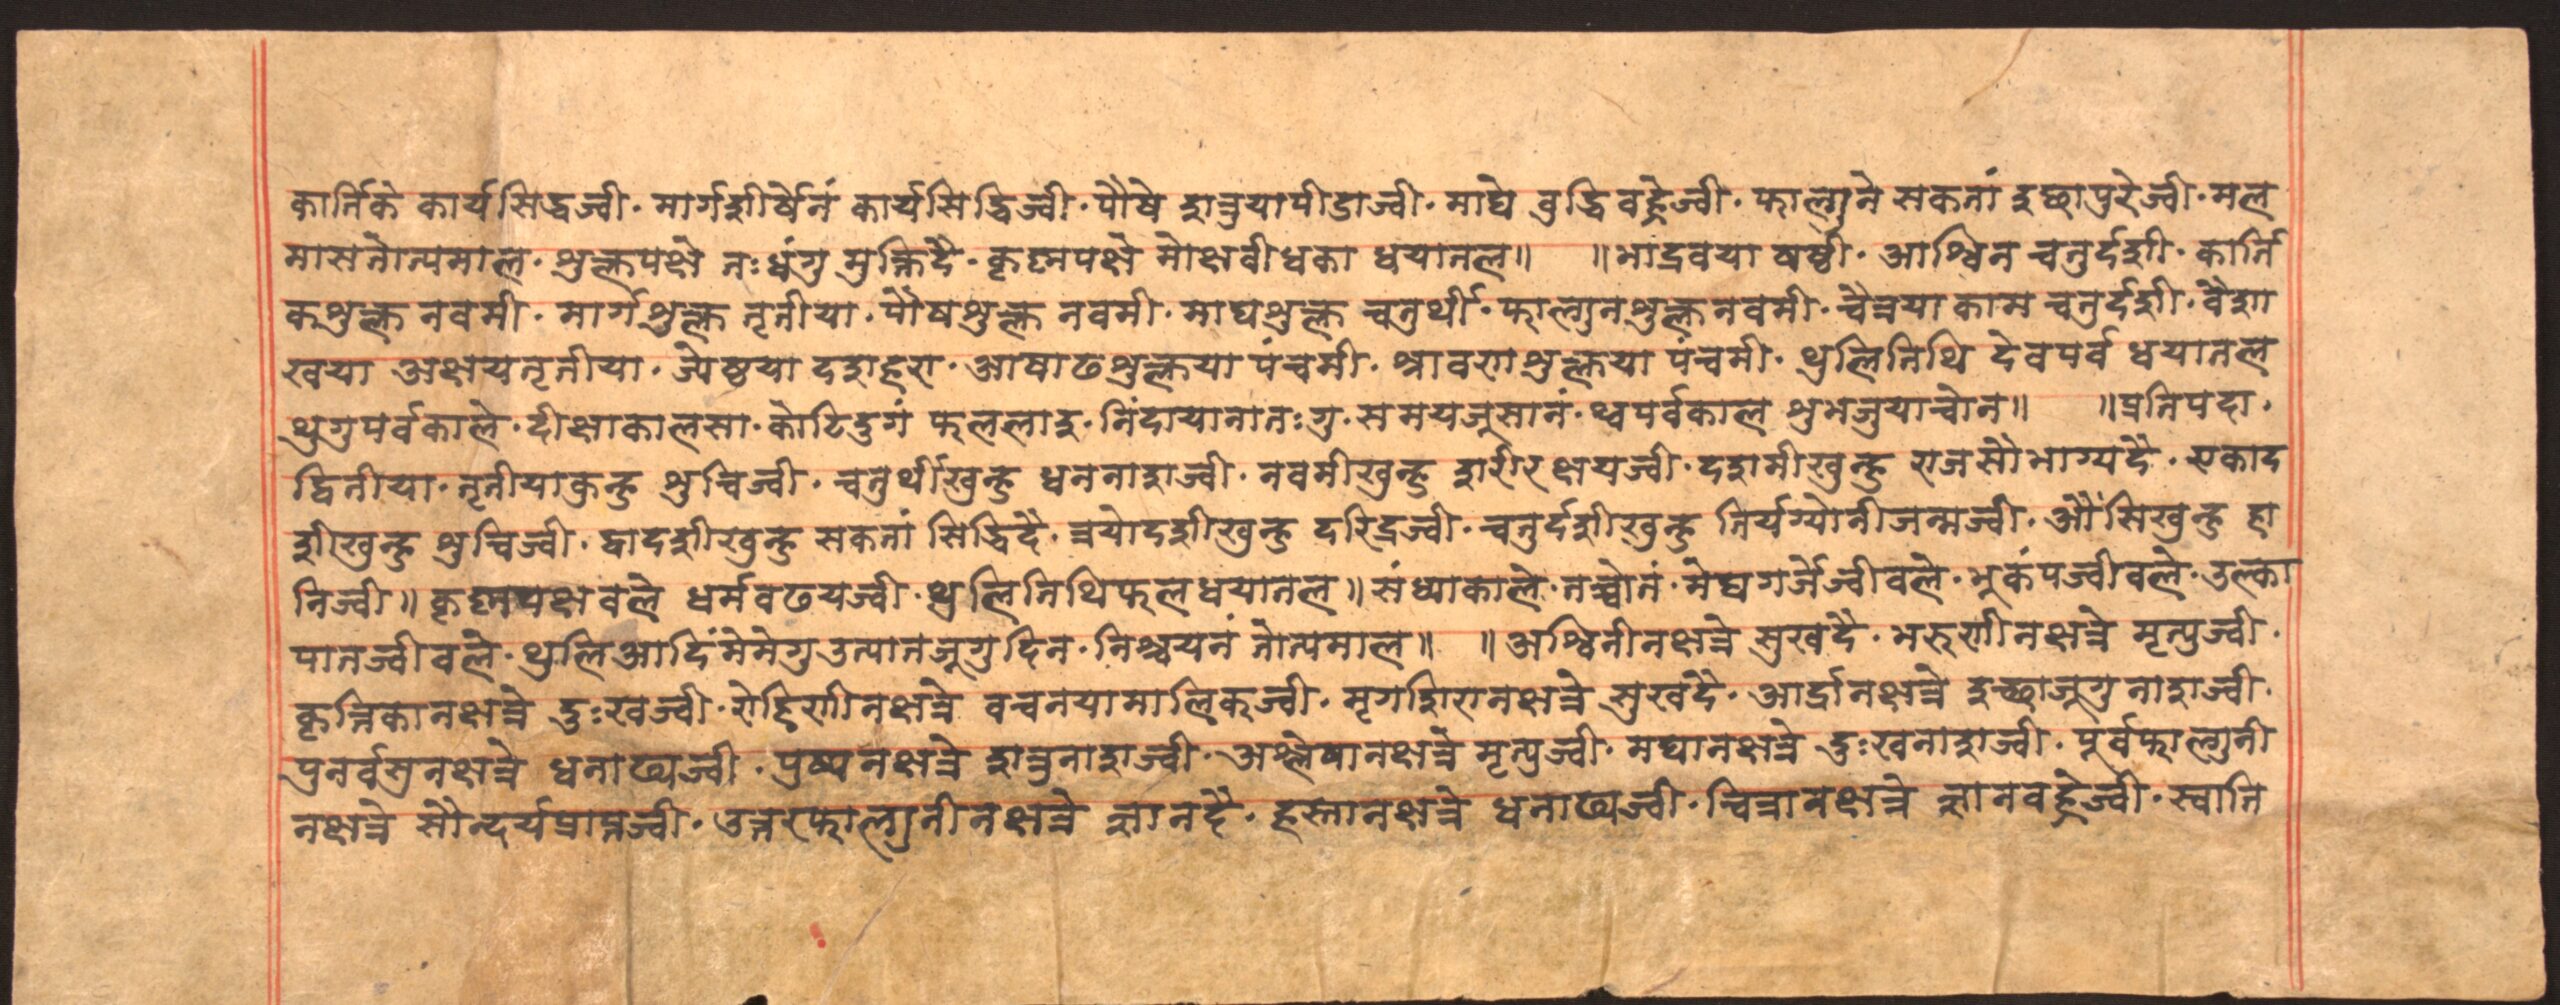 कार्तिके कार्यसिद्धज्वी · मार्गशीर्षेनं कार्यसिद्धिज्वी · पौषे शत्रुयापीडाज्वी · माघे बुद्धि वह्रेज्वी · फाल्गुने सकतां इच्छापुरेज्वी · मल
मासतोत्यमाल · शुक्लपक्षे तःधंगु मुक्तिदै · कृष्णपक्षे मोक्षवीधका धयातल॥ ॥भाद्रवया षष्ठी · आश्विन चतुर्दशी · कार्ति
कशुक्ल नवमी · मार्गशुक्ल तृतीया · पौषशुक्ल नवमी · माघशुक्ल चतुर्थी · फाल्गुनशुक्ल नवमी · चैत्रया काम चतुर्दशी · वैशा
खया अक्षयतृतीया · ज्येष्ठया दशहरा · आषाढशुक्लया पंचमी · श्रावणशुक्लया पंचमी · थुलितिथि देवपर्व धयातल
थुगुपर्वकाले · दीक्षाकालसा · कोटिदुगं फललाइ · निंदायानातःगु · समयजूसानं · थ्वपर्वकाल शुभजुयाचोन॥ ॥प्रतिपदा ·
द्वितीया · तृतीयाकुन्हु शुचिज्वी · चतुर्थीखुन्हु धननाशज्वी · नवमीखुन्हु शरीरक्षयज्वी · दशमीखुन्हु राजसौभाग्यदै · एकाद
शीखुन्हु शुचिज्वी · द्वादशीखुन्हु सकतां सिद्धिदै · त्रयोदशीखुन्हु दरिद्रज्वी · चतुर्दशीखुन्हु तिर्यग्योनीजन्मज्वी · औंसिखुन्हु हा
निज्वी॥ कृष्णपक्षवले धर्मवढयज्वी · थुलितिथिफलधयातल॥ संध्याकाले · नञ्चोनं · मेघगर्जेज्वीवले · भूकंपज्वीवले · उल्का
पातज्वीवले · थुलिआदिंमेमेगुउत्पातजूगुदिन · निश्चयनं तोत्यमाल॥ ॥अश्विनीनक्षत्रे सुखदै · भरुणीनक्षत्रे मृत्युज्वी ·
कृत्तिकानक्षत्रे दुःखज्वी · रोहिणीनक्षत्रे वचनयामालिकज्वी · मृगशिरानक्षत्रे सुखदै · आर्द्रानक्षत्रे इच्छाजूगुनाशज्वी ·
पुनर्वसुनक्षत्रे धनाढ्यज्वी · पुष्यनक्षत्रे शत्रुनाशज्वी · अश्लेषानक्षत्रे मृत्युज्वी · मघानक्षत्रे दुःखनाशज्वी · पूर्वफाल्गुनी
नक्षत्रे सौन्दर्यप्राप्तज्वी · उत्तरफाल्गुनीनक्षत्रे ज्ञानदै · हस्तानक्षत्रे धनाढ्यज्वी · चित्रानक्षत्रे ज्ञानवह्रेज्वी · स्वाति